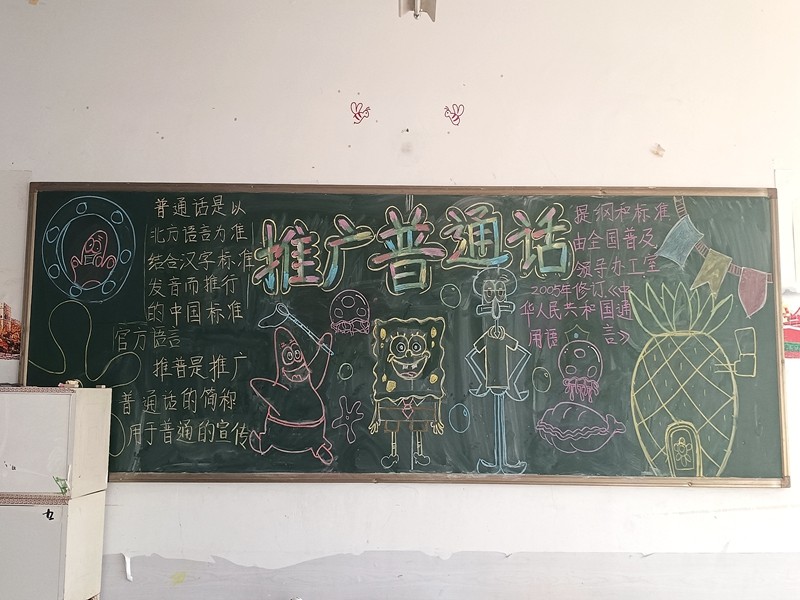 推广普通话
普通话是以
北方语言为准
结合汉字标准
发音而推行
的中国标准
官方语言
推普是推广
普通话的简称
用于普通的宣传
提纲和标准
由全国普及
领导办工室
2005年修订《中
华人民共和国通
用语言》
九